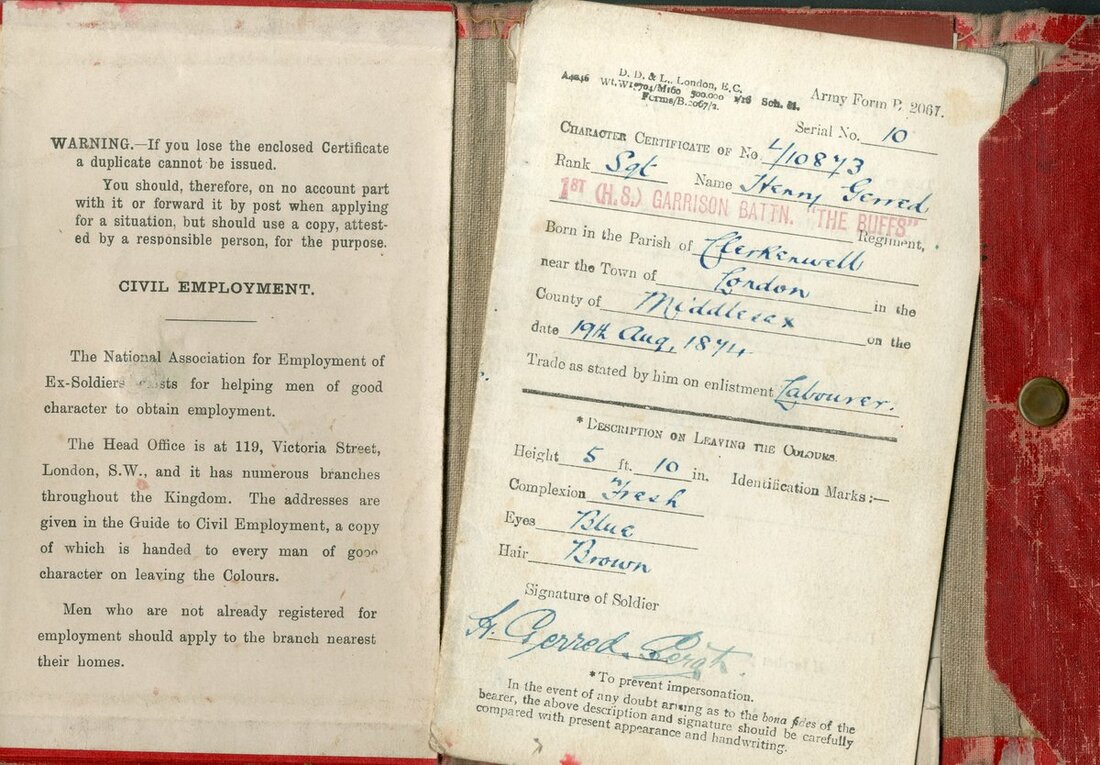 WARNING.—If you lose the enclosed Certificate
a duplicate cannot be issued.
You should, therefore, on no account part
with it or forward it by post when applying
for a situation, but should use a copy, attest-
ed by a responsible person, for the purpose.
CIVIL EMPLOYMENT.
The National Association for Employment of
Ex-Soldiers exists for helping men of good
character to obtain employment.
The Head Office is at 119, Victoria Street,
London, S.W., and it has numerous branches
throughout the Kingdom. The addresses are
given in the Guide to Civil Employment, a copy
of which is handed to every man of good
character on leaving the Colours.
Men who are not already registered for
employment should apply to the branch nearest
their homes.
D. D. & L., London, E.C.
Wt. 500,000 1/16 Sch. 
Forms/B.2067/2.
Army Form B. 2067.
Serial No. 10
CHARACTER CERTIFICATE OF No 4/10873
Rank Sgt Name Henry Gerred
1ST (H.S.) GARRISON BATTN. "THE BUFFS"
Regiment,
Born in the Parish of Clerkenwell
near the Town of London in the
County of Middlesex on the
date 19th Aug, 1874
Trade as stated by him on enlistment Labourer.
*DESCRIPTION ON LEAVING THE COLOURS.
Height 5 ft. 10 in. Identification Marks:—
Complexion Fresh
Eyes Blue
Hair Brown
Signature of Soldier
H. Gerred. Sergt.
*To prevent impersonation.
In the event of any doubt arising as to the bona fides of the
bearer, the above description and signature should be carefully
compared with present appearance and handwriting.